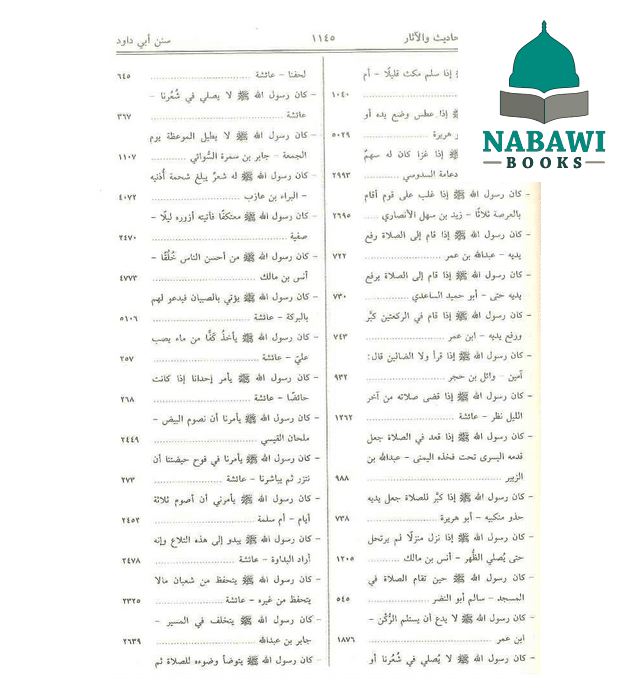 حاديث والآثار
١١٤٥
سنن أبي داود
ﷺ إذا سلم مكث قليلًا - أم
١٠٤٠
ﷺ إذا عطس وضع يده أو
هريرة ٥٠٢٩
ﷺ إذا غزا كان له سهمٌ
دعامة السدوسي ٢٩٩٣
- كان رسول الله ﷺ إذا غلب على قوم أقام
بالعرصة ثلاثًا - زيد بن سهل الأنصاري ٢٦٩٥
- كان رسول الله ﷺ إذا قام إلى الصلاة رفع
يديه - عبدالله بن عمر ٧٢٢
- كان رسول الله ﷺ إذا قام إلى الصلاة يرفع
يديه حتى - أبو حميد الساعدي ٧٣٠
- كان رسول الله ﷺ إذا قام في الركعتين كبَّر
ورفع يديه - ابن عمر ٧٤٣
- كان رسول الله ﷺ إذا قرأ ولا الضالين قال:
آمين - وائل بن حجر ٩٣٢
- كان رسول الله ﷺ إذا قضى صلاته من آخر
الليل نظر - عائشة ١٢٦٢
- كان رسول الله ﷺ إذا قعد في الصلاة جعل
قدمه اليسرى تحت فخذه اليمنى - عبدالله بن
الزبير ٩٨٨
- كان رسول الله ﷺ إذا كبَّر للصلاة جعل يديه
حذو منكبيه - أبو هريرة ٧٣٨
- كان رسول الله ﷺ إذا نزل منزلًا لم يرتحل
حتى يُصلي الظُهر - أنس بن مالك ١٢٠٥
- كان رسول الله ﷺ حين تقام الصلاة في
المسجد - سالم أبو النضر ٥٤٥
- كان رسول الله ﷺ لا يدع أن يستلم الرُّكْن -
ابن عمر ١٨٧٦
- كان رسول الله ﷺ لا يُصلي في شُعُرنا أو
لحفنا - عائشة ٦٤٥
- كان رسول الله ﷺ لا يصلي في شُعُرنا -
عائشة ٣٦٧
- كان رسول الله ﷺ لا يطيل الموعظة يوم
الجمعة - جابر بن سمرة السُّوائي ١١٠٧
- كان رسول الله ﷺ له شعرٌ يبلغ شحمة أُذنيه
- البراء بن عازب ٤٠٧٢
- كان رسول الله ﷺ معتكفًا فأتيته أزوره ليلًا -
صفية ٢٤٧٠
- كان رسول الله ﷺ من أحسن الناس خُلُقًا -
أنس بن مالك ٤٧٧٣
- كان رسول الله ﷺ يؤتي بالصبيان فيدعو لهم
بالبركة - عائشة ٥١٠٦
- كان رسول الله ﷺ يأخذُ كَفًّا من ماء يصب
عليَّ - عائشة ٢٥٧
- كان رسول الله ﷺ يأمر إحدانا إذا كانت
حائضًا - عائشة ٢٦٨
- كان رسول الله ﷺ يأمرنا أن نصوم البيض -
ملحان القيسي ٢٤٤٩
- كان رسول الله ﷺ يأمرنا في فوح حيضتنا أن
نتزر ثم يباشرنا - عائشة ٢٧٣
- كان رسول الله ﷺ يأمرني أن أصوم ثلاثة
أيام - أم سلمة ٢٤٥٢
- كان رسول الله ﷺ يبدو إلى هذه التلاع وإنه
أراد البداوة - عائشة ٢٤٧٨
- كان رسول الله ﷺ يتحفظ من شعبان مالا
يتحفظ من غيره - عائشة ٢٣٢٥
- كان رسول الله ﷺ يتخلف في المسير -
جابر بن عبدالله ٢٦٣٩
- كان رسول الله ﷺ يتوضأ وضوءه للصلاة ثم
NABAWI
BOOKS